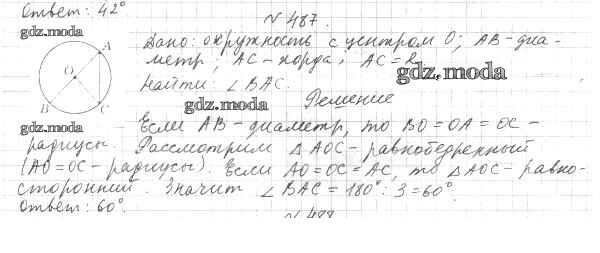 Ответ: 42°
N 487.
gdz.moda
A
O
B
C
Дано: окружность с центром O; AB - диа-
метр; AC - хорда, AC = R
gdz.moda
Найти: ∠BAC.
gdz.moda
Решение
gdz.moda
Если AB - диаметр, то BO = OA = OC -
радиусы. Рассмотрим △AOC - равнобедренный
(AO = OC - радиусы). Если AO = OC = AC, то △AOC - равно-
сторонний. Значит ∠BAC = 180° : 3 = 60°.
Ответ: 60°.
N 488